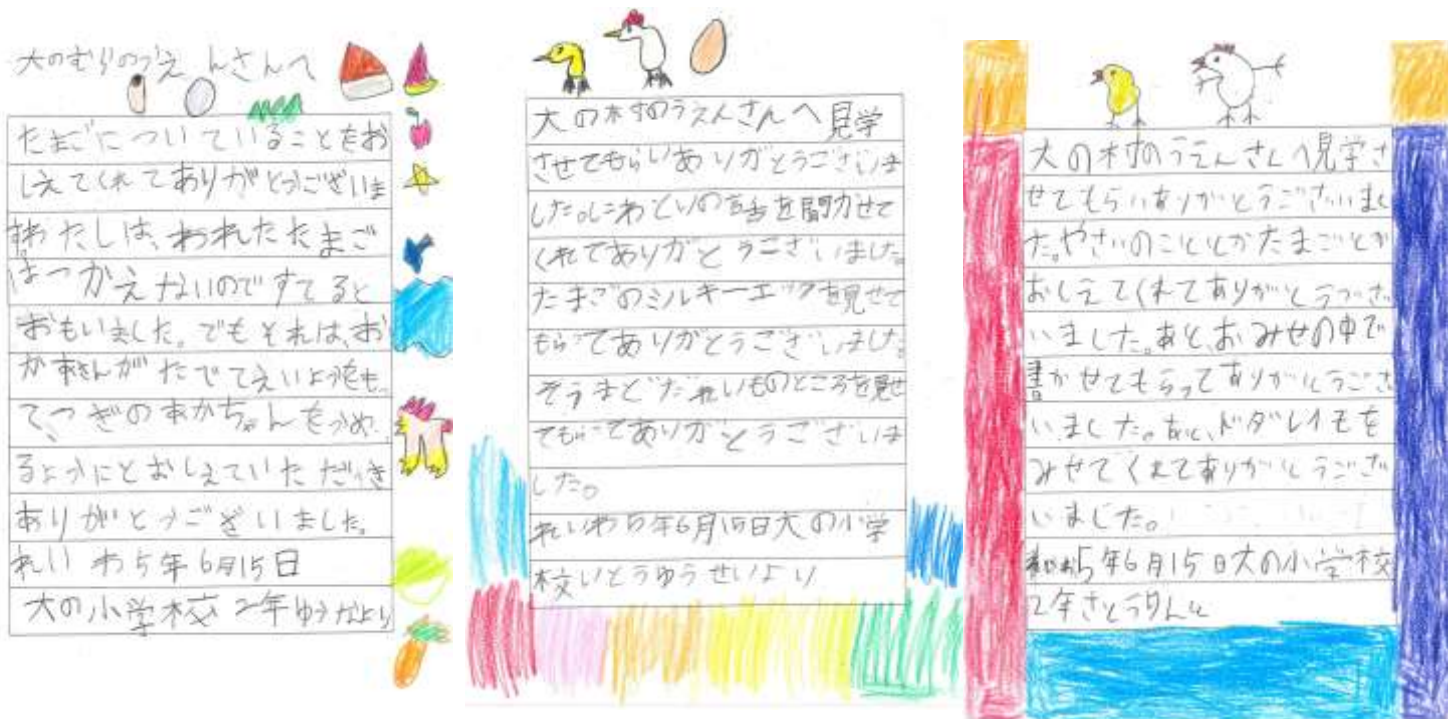 大のむらのうえんさんへ
たまごについていることをお
しえてくれてありがとうございま
わたしは、われたたまご
はつかえないのですてると
おもいました。でもそれは、お
かあさんがたべてえいようをも
て、つぎのあかちゃんをうめ
るようにとおしえていただき
ありがとうございました。
れいわ5年6月15日
大の小学校 2年ゆうかより
大の村のうえんさんへ見学
させてもらいありがとうございま
した。にわとりの話を聞かせて
くれてありがとうございました。
たまごのミルキーエッグを見せて
もらってありがとうございました
ぞうまどだれいものところを見せ
てもらってありがとうございま
した。
れいわ5年6月15日大の小学
校いとうゆうせいより
大の村のうえんさんへ見学さ
せてもらいありがとうございまし
た。やさいのこととかたまごとか
おしえてくれてありがとうござ
いました。あと、おみせの中で
書かせてもらってありがとうござ
いました。あと、ドダレイモを
みせてくれてありがとうござ
いました。
5年6月15日大の小学校
2年さとうりんと